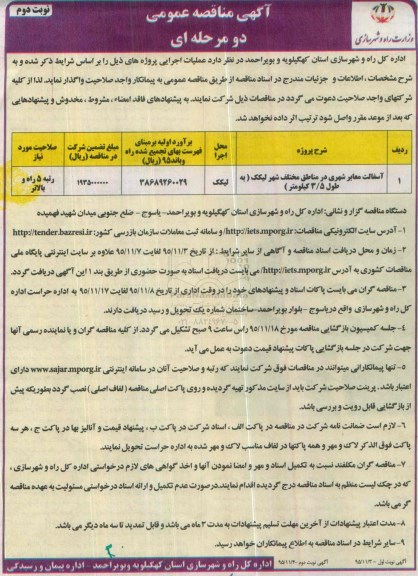 آگهی مناقصه عمومی
دو مرحله ای
نوبت دوم
وزارت راه و شهرسازی
اداره کل راه و شهرسازی استان کهگیلویه و بویراحمد در نظر دارد عملیات اجرایی پروژه های ذیل را بر اساس شرایط ذکر شده و به
شرح مشخصات ، اطلاعات و جزئیات مندرج در اسناد مناقصه از طریق مناقصه عمومی به پیمانکار واجد صلاحیت واگذار نماید. لذا از کلیه
شرکتهای واجد صلاحیت دعوت می گردد در مناقصات ذیل شرکت نمایند. به پیشنهادهای فاقد امضاء ، مشروط ، مخدوش و پیشنهادهایی
که بعد از موعد مقرر واصل شود ترتیب اثر داده نخواهد شد.
ردیف
شرح پروژه
محل اجرا
برآورد اولیه برمبنای فهرست بهای تجمیع شده راه وباند۹۵ (ریال)
مبلغ تضمین شرکت در مناقصه (ریال)
صلاحیت مورد نیاز
۱
آسفالت معابر شهری در مناطق مختلف شهر لیکک ( به طول ۳/۵ کیلومتر )
لیکک
۳۸۶۸۹۲۶۰۰۲۹
۱۹۳۵۰۰۰۰۰۰
رتبه ۵ راه و بالاتر
دستگاه مناقصه گزار و نشانی: اداره کل راه و شهرسازی استان کهگیلویه و بویراحمد- یاسوج - ضلع جنوبی میدان شهید فهمیده
۱- آدرس سایت الکترونیکی مناقصات: http://iets.mporg.ir و سامانه ثبت معاملات سازمان بازرسی کشور: http://tender.bazresi.ir
۲- زمان و محل دریافت اسناد مناقصه و آگاهی از سایر شرایط : از تاریخ ۹۵/۱۱/۳ لغایت ۹۵/۱۱/۷ علاوه بر سایت اینترنتی پایگاه ملی
مناقصات کشوری به آدرس http://iets.mporg.ir می بایست دریافت اسناد به صورت حضوری از طریق بند ۱ این آگهی دریافت گردد.
۳- مناقصه گران می بایست پاکات اسناد و پیشنهادهای خود را در وقت اداری از تاریخ ۹۵/۱۱/۸ لغایت ۹۵/۱۱/۱۷ به اداره حراست اداره
کل راه و شهرسازی واقع دریاسوج - بلوار بویراحمد- ساختمان شماره یک تحویل و رسید دریافت دارند.
۴- جلسه کمیسیون بازگشایی مناقصه مورخ ۹۵/۱۱/۱۸ راس ساعت ۹ صبح تشکیل می گردد. از کلیه مناقصه گران و یا نماینده رسمی آنها
جهت شرکت در جلسه بازگشایی پاکات پیشنهاد قیمت دعوت به عمل می آید.
۵- تنها پیمانکارانی میتوانند در مناقصات فوق شرکت نمایند که رتبه و صلاحیت آنان در سامانه اینترنتی www.sajar.mporg.ir دارای
اعتبار باشد . پرینت صلاحیت شرکت باید از سایت مذکور تهیه گردیده و روی پاکت اصلی مناقصه ( لفاف اصلی ) نصب گردد بطوریکه پیش
از بازگشایی قابل رویت و بررسی باشد.
۶- لازم است ضمانت نامه شرکت در مناقصه در پاکت الف ، اسناد شرکت در پاکت ب ، پیشنهاد قیمت و آنالیز بها در پاکت ج ، هر سه
پاکت فوق الذکر لاک و مهر و همه پاکتها در لفاف مناسب لاک و مهر شده به اداره حراست تحویل نمایند.
۷- مناقصه گران مکلفند نسبت به تکمیل اسناد و مهر و امضا نمودن آنها و اخذ گواهی های لازم درخواستی اداره کل راه و شهرسازی ،
که در چک لیست منظم به اسناد مناقصه درج گردیده اقدام نمایند.درصورت عدم تکمیل و ارائه اسناد درخواستی مسئولیت به عهده مناقصه
گر می باشد.
۸- مدت اعتبار پیشنهادات از آخرین مهلت تسلیم پیشنهادات به مدت ۳ ماه می باشد و قابل تمدید تا سه ماه دیگر می باشد.
۹- سایر شرایط در اسناد مناقصه به اطلاع پیمانکاران خواهد رسید.
آگهی نوبت اول - ۹۵/۱۱/۳ آگهی نوبت دوم
اداره کل راه و شهرسازی استان کهگیلویه وبویراحمد - اداره پیمان و رسیدگی